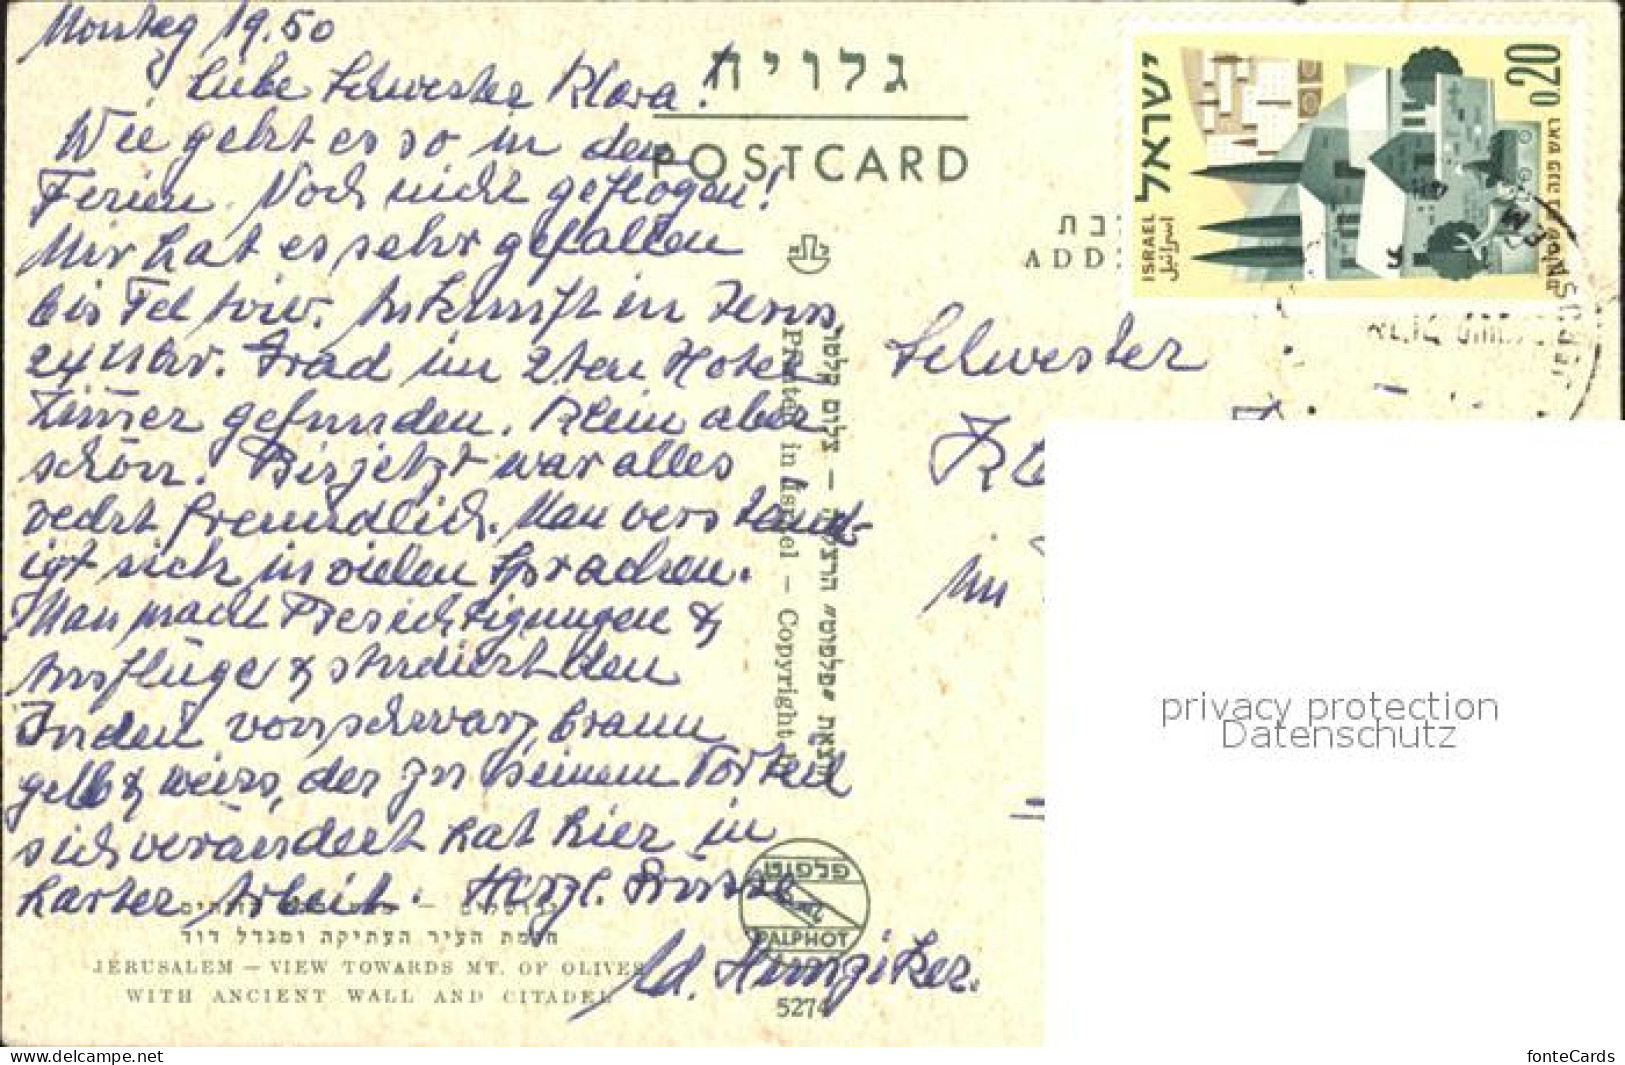 Montag 19.50
Liebe Schwester Klara!
Wie geht es so in den
Ferien. Noch nicht geflogen!
Mir hat es sehr gefallen
bis Tel Aviv. Ankunft in Jerus.
24 Uhr. Grad im 2ten Hotel
Zimmer gefunden. Klein aber
schön. Bis jetzt war alles
recht freundlich. Man verständ-
igt sich in vielen Sprachen.
Man macht Besichtigungen &
Ausflüge & studiert den
Juden von schwarz, braun
gelb & weiss, der zu seinem Vorteil
sich verändert hat hier in
harter Arbeit. Herzl. Grüsse
Ad. Hunziker.
גלויה
POSTCARD
ADD
Schwester
Printed in Israel – Copyright
חומת העיר העתיקה ומגדל דוד
JERUSALEM – VIEW TOWARDS MT. OF OLIVES
WITH ANCIENT WALL AND CITADEL
פלפוט
PALPHOT
5274
ישראל
ISRAEL
اسرائيل
0.20
privacy protection
Datenschutz
www.delcampe.net
fonteCards